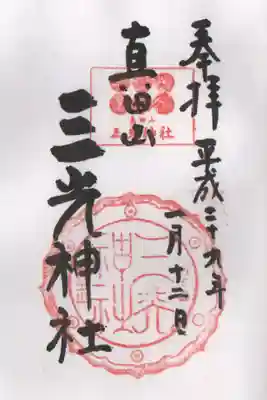 奉拝
平成二十九年
一月十二日
真田山
三光神社